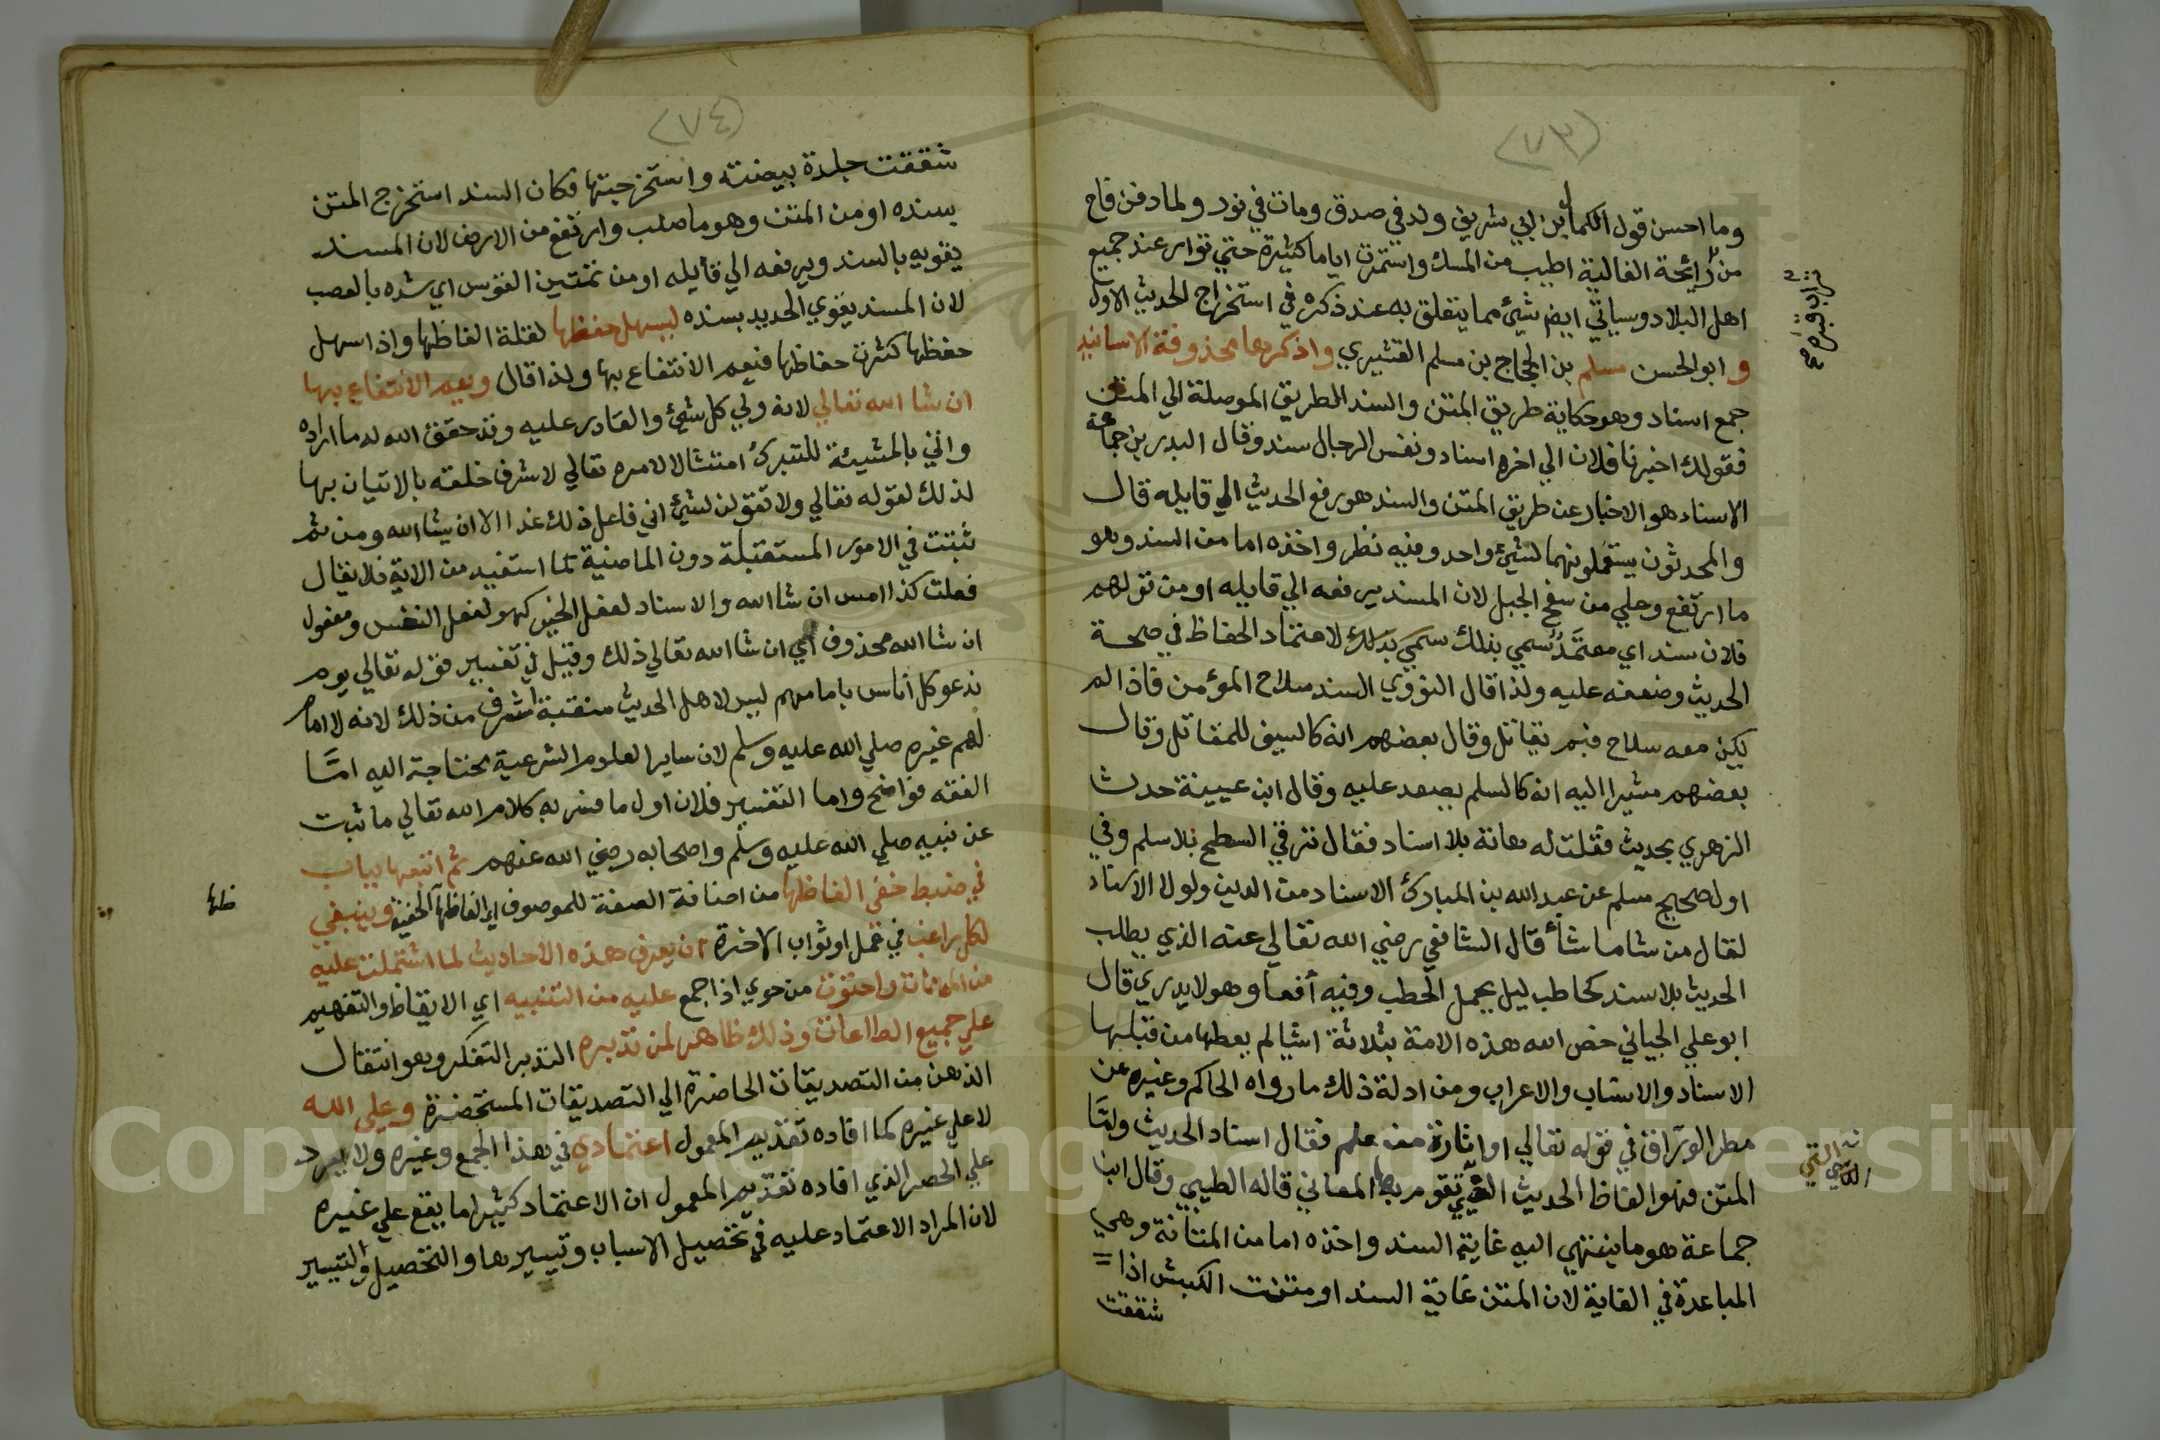 (٧٣)
وما احسن قول الكمال بن ابي شريف ولد في صدق ومات في نور ولما دفن فاح
من رائحة الغالية اطيب من المسك واستمرت اياما كثيرة حتي تواتر عند جميع
اهل البلاد وسياتي ايضا شيئ مما يتعلق به عند ذكره في استخراج الحديث الاول
و ابو الحسن مسلم بن الحجاج بن مسلم القشيري واذكرها محذوفة الاسانيد
جمع اسناد وهو حكاية طريق المتن والسند الطريق الموصلة الي المتن
فقولك اخبرنا فلان الي اخره اسناد ونفس الرجال سند وقال البدر بن جماعة
الاسناد هو الاخبار عن طريق المتن والسند هو رفع الحديث الي قايله قال
والمحدثون يستعملونهما لشيئ واحد وفيه نظر واخذه اما من السند وهو
ما ارتفع وعلي من سفح الجبل لان المسند يرفعه الي قايله او من قولهم
فلان سند اي معتمد سمي بذلك لاعتماد الحفاظ في صحة
الحديث وضعفه عليه ولذا قال النووي السند سلاح المؤمن فاذا لم
يكن معه سلاح فبم يقاتل وقال بعضهم انه كالسيف للمقاتل وقال
بعضهم مشيرا اليه انه كالسلم يصعد عليه وقال ابن عيينة حدث
الزهري بحديث فقلت له هاته بلا اسناد فقال ترقي السطح بلا سلم وفي
اول صحيح مسلم عن عبد الله بن المبارك الاسناد من الدين ولولا الاسناد
لقال من شا ما شأ قال الشافعي رضي الله تعالي عنه الذي يطلب
الحديث بلا سند كحاطب ليل يحمل الحطب وفيه أفعا وهو لا يدري قال
ابو علي الجياني خص الله هذه الامة بثلاثة اشيا لم يعطها من قبلها
الاسناد والانساب والاعراب ومن ادلة ذلك ما رواه الحاكم وغيره عن
مطر الوراق في قوله تعالي او اثارة من علم فقال اسناد الحديث ولمّا
المتن فهو الفاظ الحديث التي تقوم بها المعاني قاله الطيبي وقال ابن
جماعة هو ما ينتهي اليه غاية السند واخذه اما من المتانة وهي
المباعدة في الغاية لان المتن غاية السند او متنت الكبش اذا =
شققت
(٧٤)
شققت جلدة بيضته واستخرجتها فكان السند استخرج المتن
بسنده او من المتن وهو ما صلب وارتفع من الارض لان المسند
يقويه بالسند ويرفعه الي قأيله او من تمتين القوس اي شده بالعصب
لان المسند يقوي الحديد بسنده ليسهل حفظها لقلة الفاظها واذا سهل
حفظها كثرت حفاظها فيعم الانتفاع بها ولذا قال ويعم الانتفاع بها
ان شا الله تعالي لانه ولي كل شيئ والقادر عليه وقد حقق الله له ما اراده
واتي بالمشيئة للتبرك امتثالا لامره تعالي لاشرف خلقه بالاتيان بها
لذلك لقوله تعالي ولا تقولن لشيئ اني فاعل ذلك غدا الا ان يشا الله ومن ثم
ثبتت في الامور المستقبلة دون الماضية لما استفيد من الاية فلا يقال
فعلت كذا امس ان شا الله والاسناد لفعل الخير كهو لفعل النفس ومفعول
ان شا الله محذوف أي ان شا الله تعالي ذلك وقيل في تفسير قوله تعالي يوم
ندعو كل أناس بامامهم ليس لاهل الحديث منقبة اشرف من ذلك لانه لا امام
لهم غيره صلي الله عليه وسلم لان ساير العلوم الشرعية محتاجة اليه امّا
الفقه فواضح واما التفسير فلان اول ما فسر به كلام الله تعالي ما ثبت
عن نبيه صلي الله عليه وسلم واصحابه رضي الله عنهم ثم اتبعها بباب
في ضبط خفي الفاظها من اضافة الصفة للموصوف اي الفاظها الخفية وينبغي
لكل راغب في عمل او ثواب الاخرة ان يعرف هذه الاحاديث لما اشتملت عليه
من المهمات واحتوت من حوي اذا جمع عليه من التنبيه اي الايقاظ والتفهيم
علي جميع الطاعات وذلك ظاهر لمن تدبره التدبر التفكر وهو انتقال
الذهن من التصديقات الحاضرة الي التصديقات المستحضرة وعلي الله
لا علي غيره كما افاده تقديم المعمول اعتمادي في هذا الجمع وغيره ولا يرد
علي الحصر الذي افاده تقديم المعمول ان الاعتماد كثيرا ما يقع علي غيره
لان المراد الاعتماد عليه في تحصيل الاسباب وتيسيرها والتحصيل والتيسير
Copyright © King Saud University